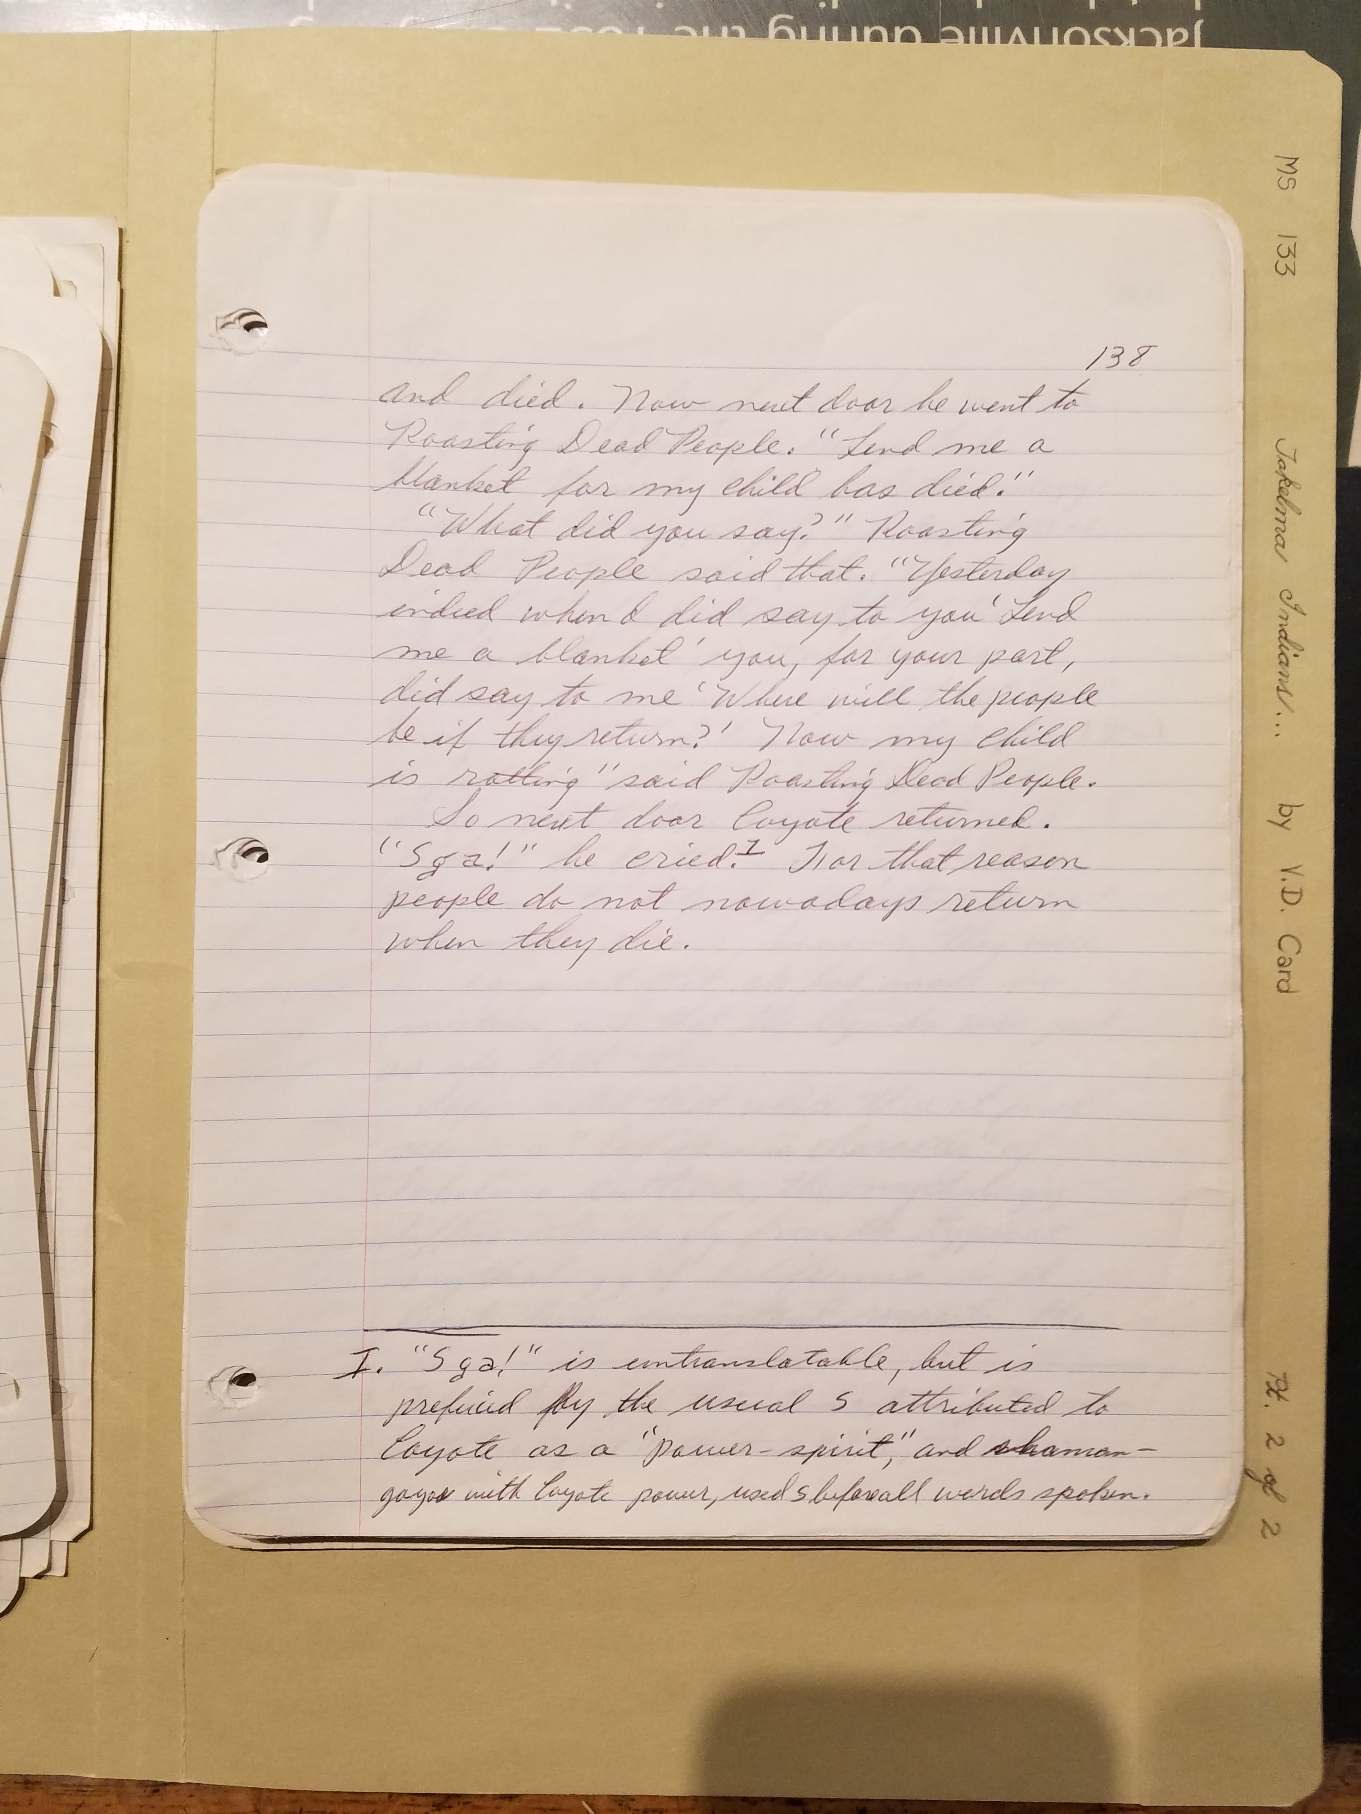 Jacksonville during the 1852
138
and died. Now next door he went to
Roasting Dead People. "Lend me a
blanket for my child has died."
"What did you say?" Roasting
Dead People said that. "Yesterday
indeed when I did say to you 'Lend
me a blanket' you, for your part,
did say to me 'Where will the people
be if they return?' Now my child
is rotting" said Roasting Dead People.
So next door Coyote returned.
"Sga!" he cried.I For that reason
people do not nowadays return
when they die.
I. "Sga!" is untranslatable, but is
prefixed by the usual S attributed to
Coyote as a "power-spirit," and shaman-
goyos with Coyote power, used S before all words spoken.
MS 133 Takelma Indians... by V.D. Card Pt. 2 of 2